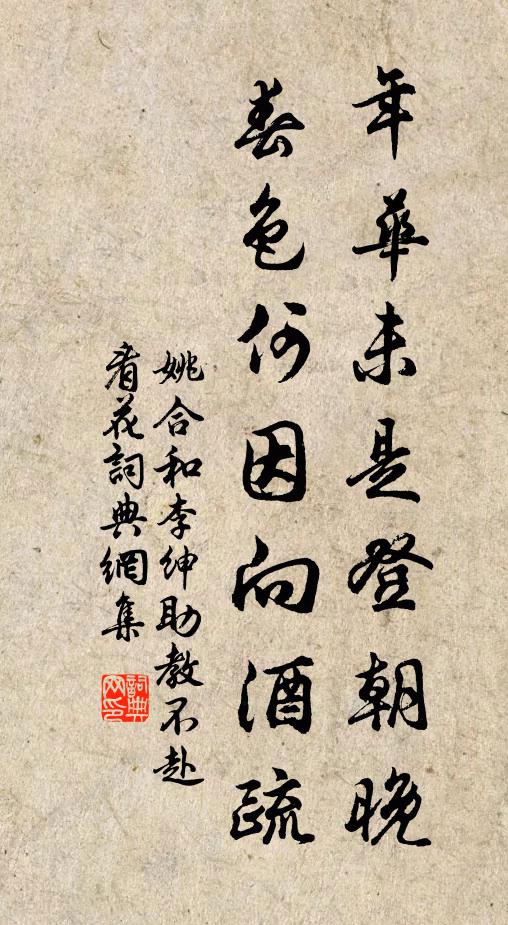 年華未是登朝晚
春色何因向酒疏
姚合和李紳助教不赴
看花詞典網集
詞典
网印